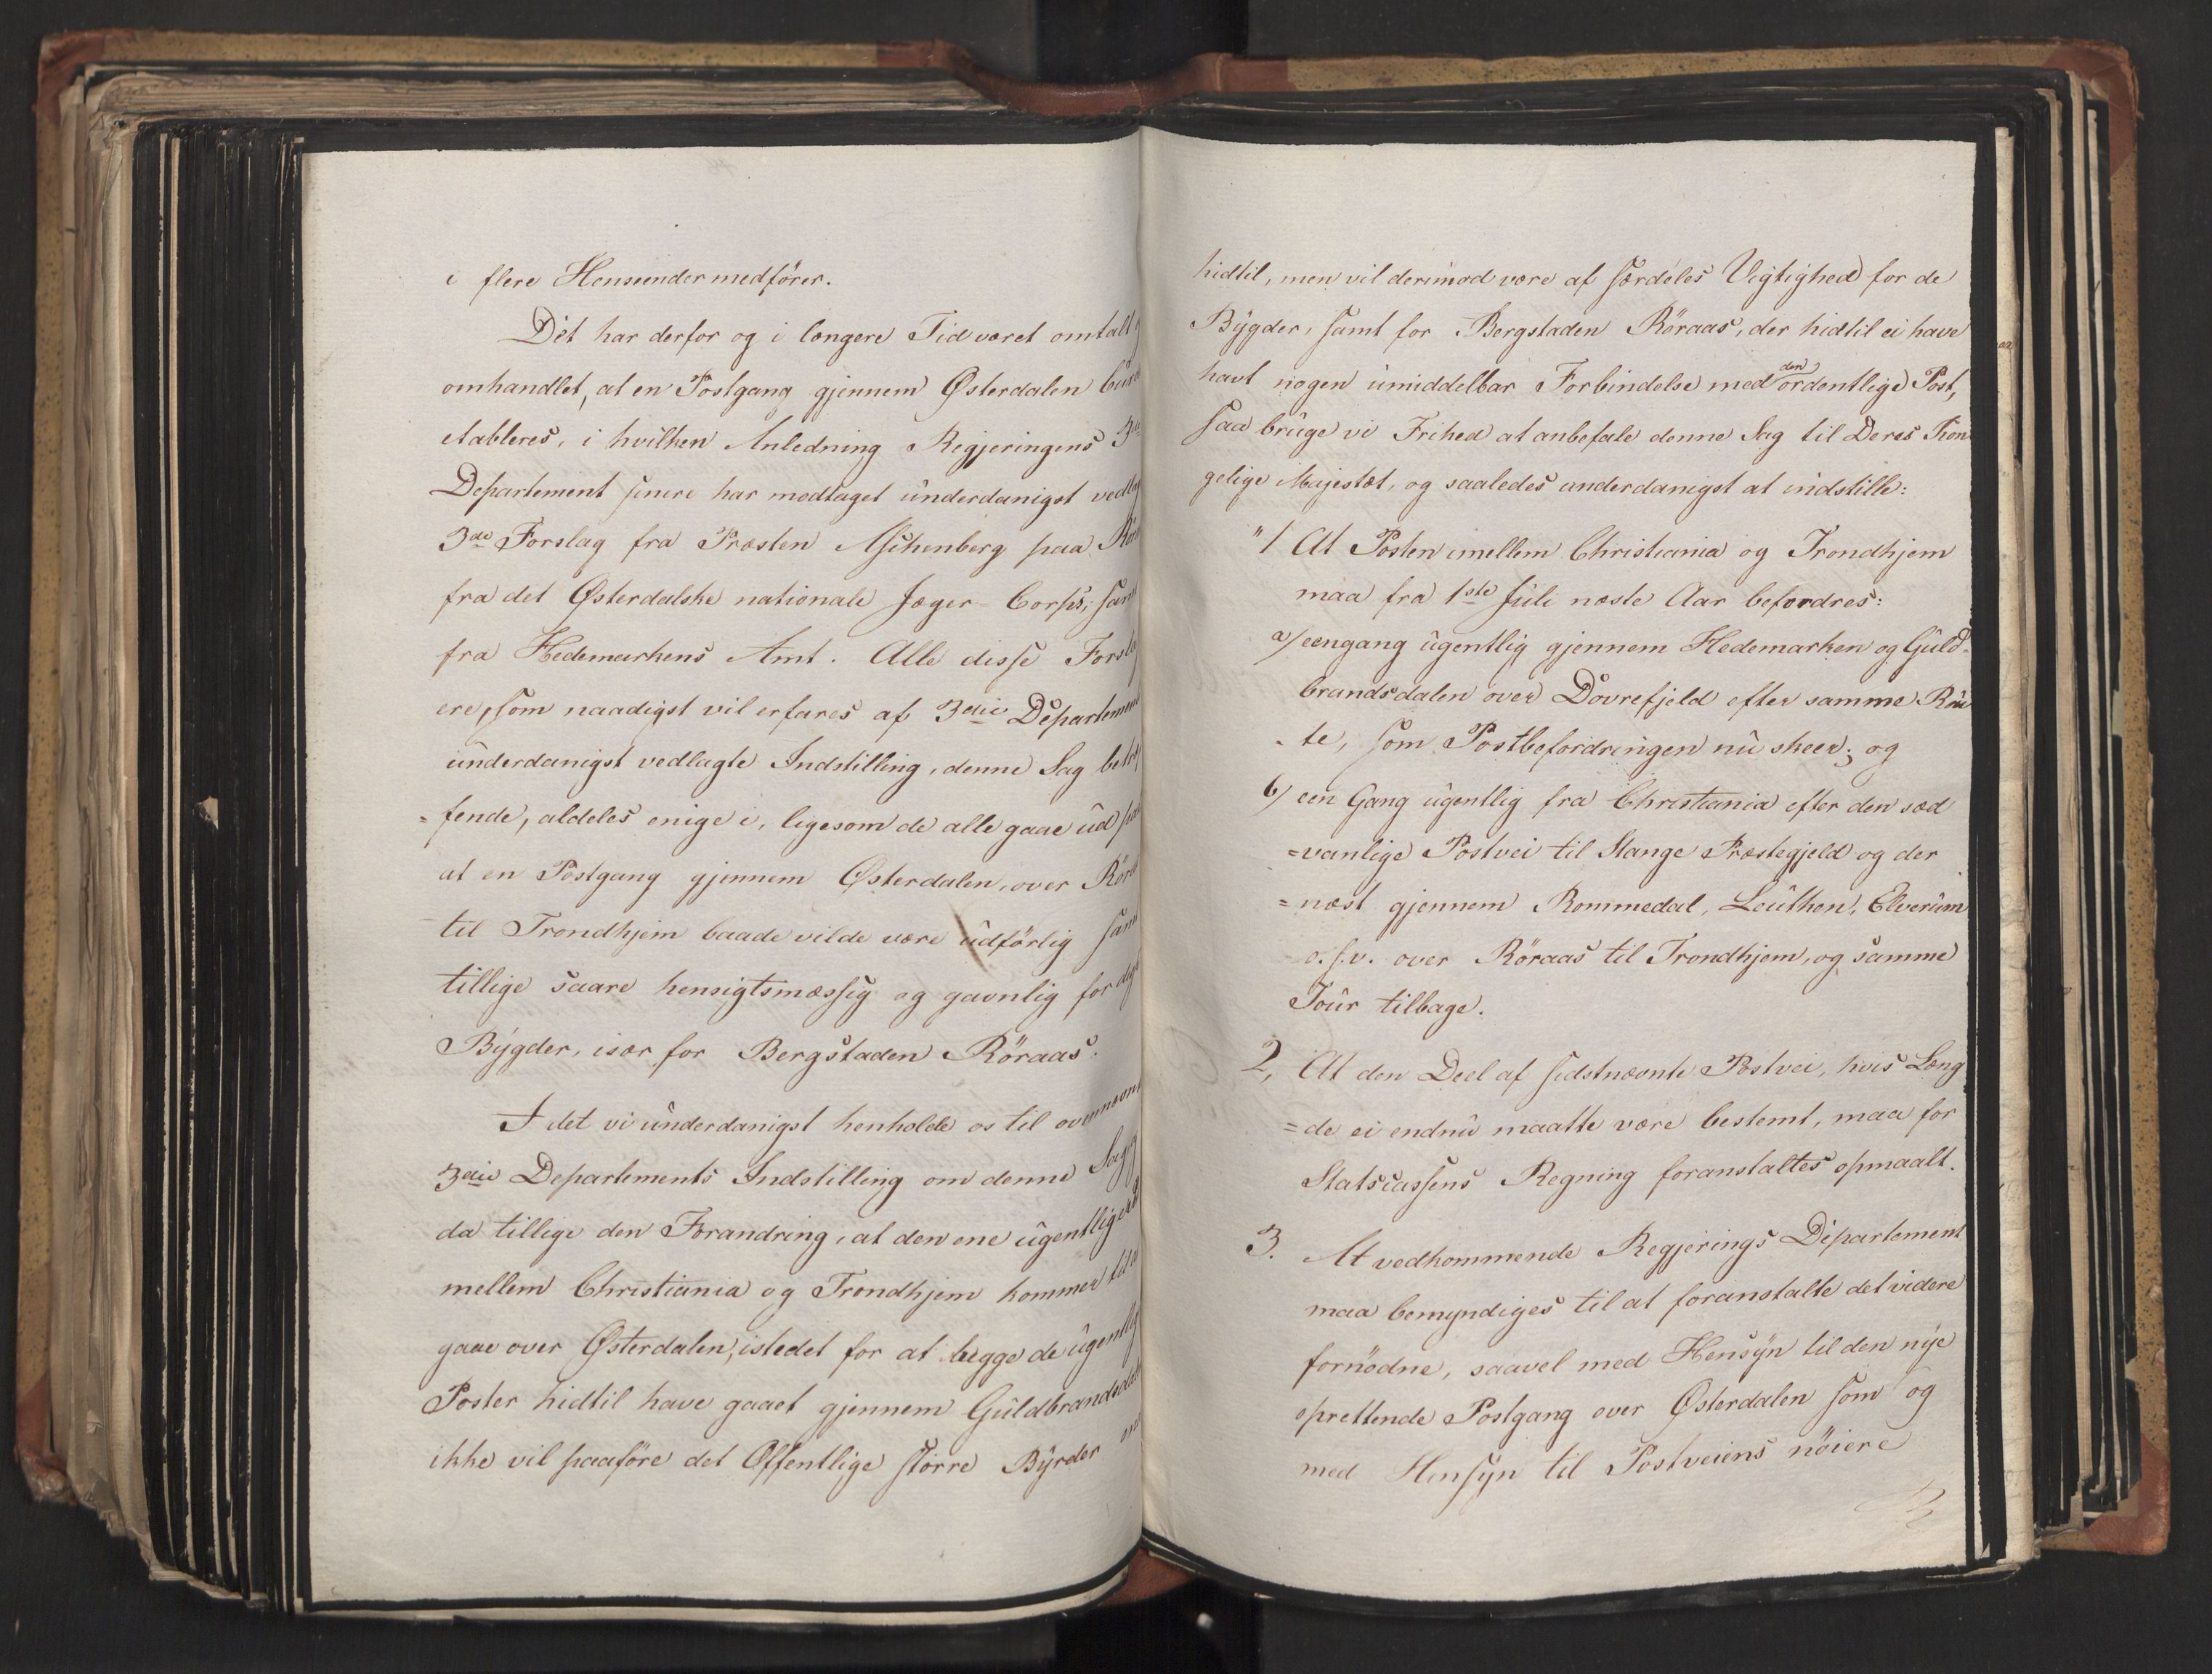 i flere Henseender medfører.
Det har derfor og i længere Tid været omtalt
omhandlet, at en Postgang gjennem Østerdalen burde
etableres, i hvilken Anledning Regjeringens 3die
Departement senere har modtaget underdanigst vedlag
3de Forslag fra Præsten Aschenberg paa Rör
fra det Østerdalske nationale Jæger-Corps, sam
fra Hedemarkens Amt. Alle disse Forsla
ere, som naadigst vil erfares af 3die Departemen
underdanigst vedlagte Indstilling, denne Sag betræf
=fende, aldeles enige i, ligesom de alle gaae ud paa
at en Postgang gjennem Østerdalen, over Röra
til Trondhjem baade vilde være udførlig sam
tillige saare hensigtsmæssig og gavnlig for
Bygder, især for Bergstaden Röraas.
I det vi underdanigst henholde os til ovennævnt
3die Departements Indstilling om denne Sag
da tillige den Forandring, at den ene ugentlige
mellem Christiania og Trondhjem kommer til
gaae over Østerdalen, istedet for at begge de ugentlig
Poster hidtil have gaaet gjennem Guldbrandsdal
ikke vil paaføre det Offentlige større Byrder end
hidtil, men vil derimod være af særdeles Vigtighed for de
Bygder, samt for Bergstaden Röraas, der hidtil ei have
havt nogen umiddelbar Forbindelse med den ordentlige Post,
saa bruge vi Frihed at anbefale denne Sag til Deres Kon
gelige Majestæt, og saaledes underdanigst at indstille:
"1/ At Posten imellem Christiania og Trondhjem
maa fra 1ste Juli næste Aar befordres:
a/ eengang ugentlig gjennem Hedemarken og Guld-
brandsdalen over Dovrefjeld efter samme Rou
-te, som Postbefordringen nu skeer; og
b/ een Gang ugentlig fra Christiania efter den sæd
=vanlige Postvei til Stange Præstegjeld og der
=næst gjennem Rommedal, Leuthen, Elverum
o.s.v. over Röraas til Trondhjem, og samme
Tour tilbage.
2, At den Deel af sidstnævnte Postvei, hvis Læng
=de ei endnu maatte være bestemt, maa for
Statscassens Regning foranstaltes opmaalt.
3. At vedkommende Regjerings Departement
maa bemyndiges til at foranstalte det videre
fornødne, saavel med Hensyn til den nye
oprettende Postgang over Østerdalen som og
med Hensyn til Postveiens nöiere